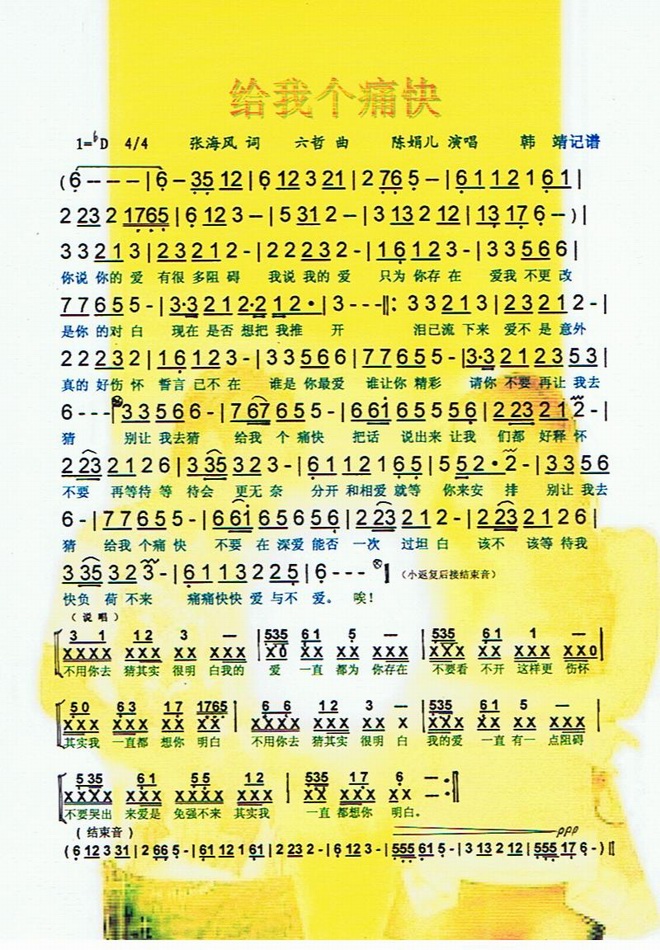 给我个痛快
1=♭D 4/4 张海风 词 六哲 曲 陈娟儿 演唱 韩 靖记谱
(6 - - - | 6 - 35 12 | 6 12 3 21 | 2 76 5 - | 6 1 1 2 1 6 1 |
2 23 2 1765 | 6 12 3 - | 5 31 2 - | 3 13 2 12 | 13 17 6 - ) |
3 3 2 1 3 | 2 3 2 1 2 - | 2 2 2 3 2 - | 1 6 1 2 3 - | 3 3 5 6 6 |
你说 你的 爱 有很 多阻 碍 我说 我的 爱 只为 你存 在 爱我 不更 改
7 7 6 5 5 - | 3·3 2 1 2·2 1 2 · | 3 - - - ‖: 3 3 2 1 3 | 2 3 2 1 2 - |
是你 的对 白 现在 是否 想把 我推 开 泪已流 下来 爱不 是 意外
2 2 2 3 2 | 1 6 1 2 3 - | 3 3 5 6 6 | 7 7 6 5 5 - | 3·3 2 1 2 3 5 3 |
真的 好伤 怀 誓言 已不 在 谁是 你最爱 谁让你 精彩 请你 不要 再让 我去
6 - - - | 3 3 5 6 6 - | 7 67 6 5 5 - | 6 61 6 5 5 5 6 | 2 23 2 1 2 - |
猜 别让 我去猜 给我 个 痛快 把话 说出来 让我 们都 好释 怀
2 23 2 1 2 6 | 3 35 3 2 3 - | 6 1 1 2 1 6 5 | 5 5 2 · 2 - | 3 3 5 6
不要 再等待 等 待会 更无 奈 分开 和相爱 就等 你来安 排 别让 我去
6 - | 7 7 6 5 5 - | 6 61 6 5 6 5 6 | 2 23 2 1 2 - | 2 23 2 1 2 6 |
猜 给我 个痛 快 不要 在 深爱 能否 一次 过坦 白 该不 该等 待我
3 35 3 2 3 - | 6 1 1 3 2 2 5 | 6 - - - ‖ (小返复后接结束音)
快负 荷 不来 痛痛快快 爱 与不 爱。 唉！
(说唱)
3 1 1 2 3 - | 535 6 1 5 - | 535 6 1 1 - |
X X X X X X X X X X X X X | X 0 X X X X X X | X X X X X X X X X X 0 |
不用你去 猜其实 很明 白我的 爱 一直 都为 你存在 不要看 不开 这样更 伤怀
5 0 6 3 1 7 1765 | 6 6 1 2 3 - | 535 6 1 5 - |
X X X X X X X X X X | X X X X X X X X X X | X X X X X X X X X X |
其实我 一直都 想你 明白 不用你去 猜其实 很明 白 我的爱 一直 有一 点阻碍
5 35 6 1 5 5 1 2 | 535 1 7 6 - :‖
X X X X X X X X X X X X X X | X X X X X X X - :‖
不要哭出 来爱是 免强不来 其实我 一直 都想你 明白。
(结束音) ppp
(6 12 3 31 | 2 66 5 - | 61 12 1 61 | 2 23 2 - | 6 12 3 - | 555 61 5 - | 3 13 2 12 | 555 17 6 - ) ‖